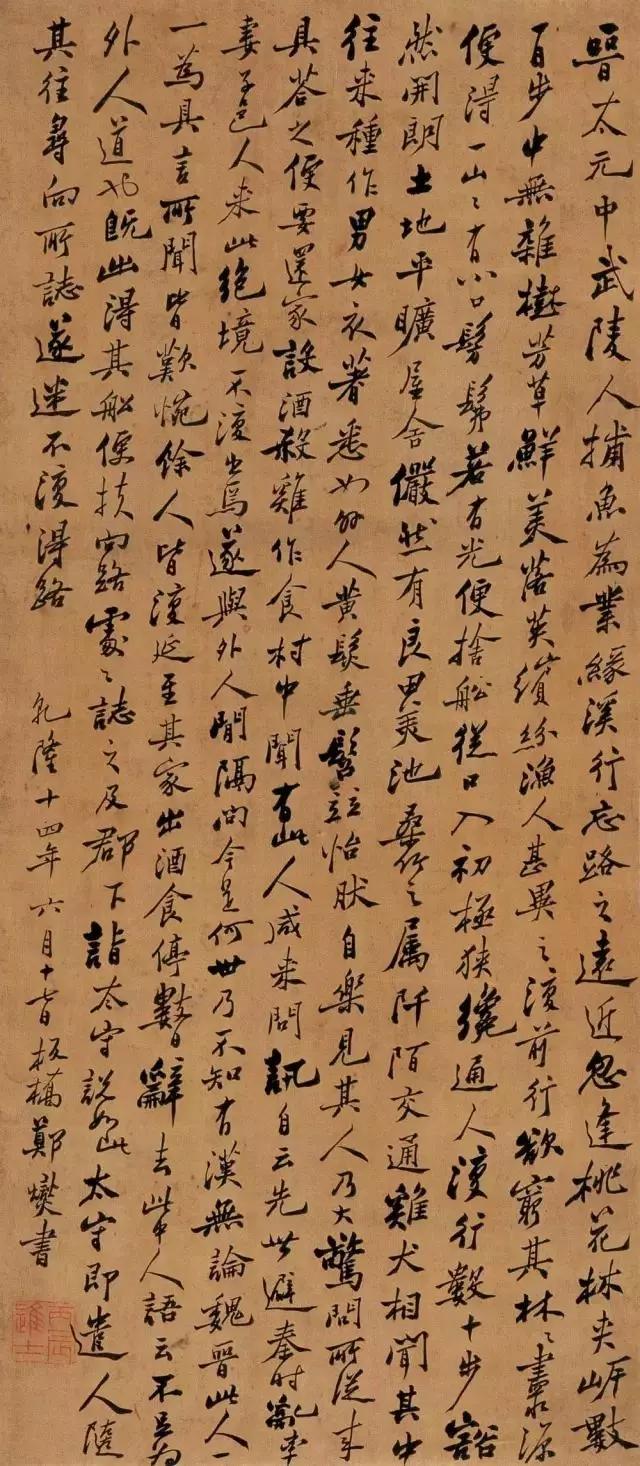 晉太元中武陵人捕魚為業緣溪行忘路之遠近忽逢桃花林夾岸數
百步中無雜樹芳草鮮美落英繽紛漁人甚異之復前行欲窮其林〻盡水源
便得一山〻有小口髣髴若有光便捨船從口入初極狹纔通人復行數十步豁
然開朗土地平曠屋舍儼然有良田美池桑竹之屬阡陌交通雞犬相聞其中
往来種作男女衣著悉如外人黃髮垂髫竝怡然自樂見其人乃大驚問所從来
具答之便要還家設酒殺雞作食村中聞有此人咸来問訊自云先世避秦時亂率
妻子邑人来此絕境不復出焉遂與外人間隔問今是何世乃不知有漢無論魏晉此人一
一為具言所聞皆歎惋餘人皆復延至其家出酒食停數日辭去此中人語云不足為
外人道也既出得其船便扶向路處〻誌之及郡下詣太守說如此太守即遣人隨
其往尋向所誌遂迷不復得路
乾隆十四年六月十日板橋鄭燮書
丙辰進士